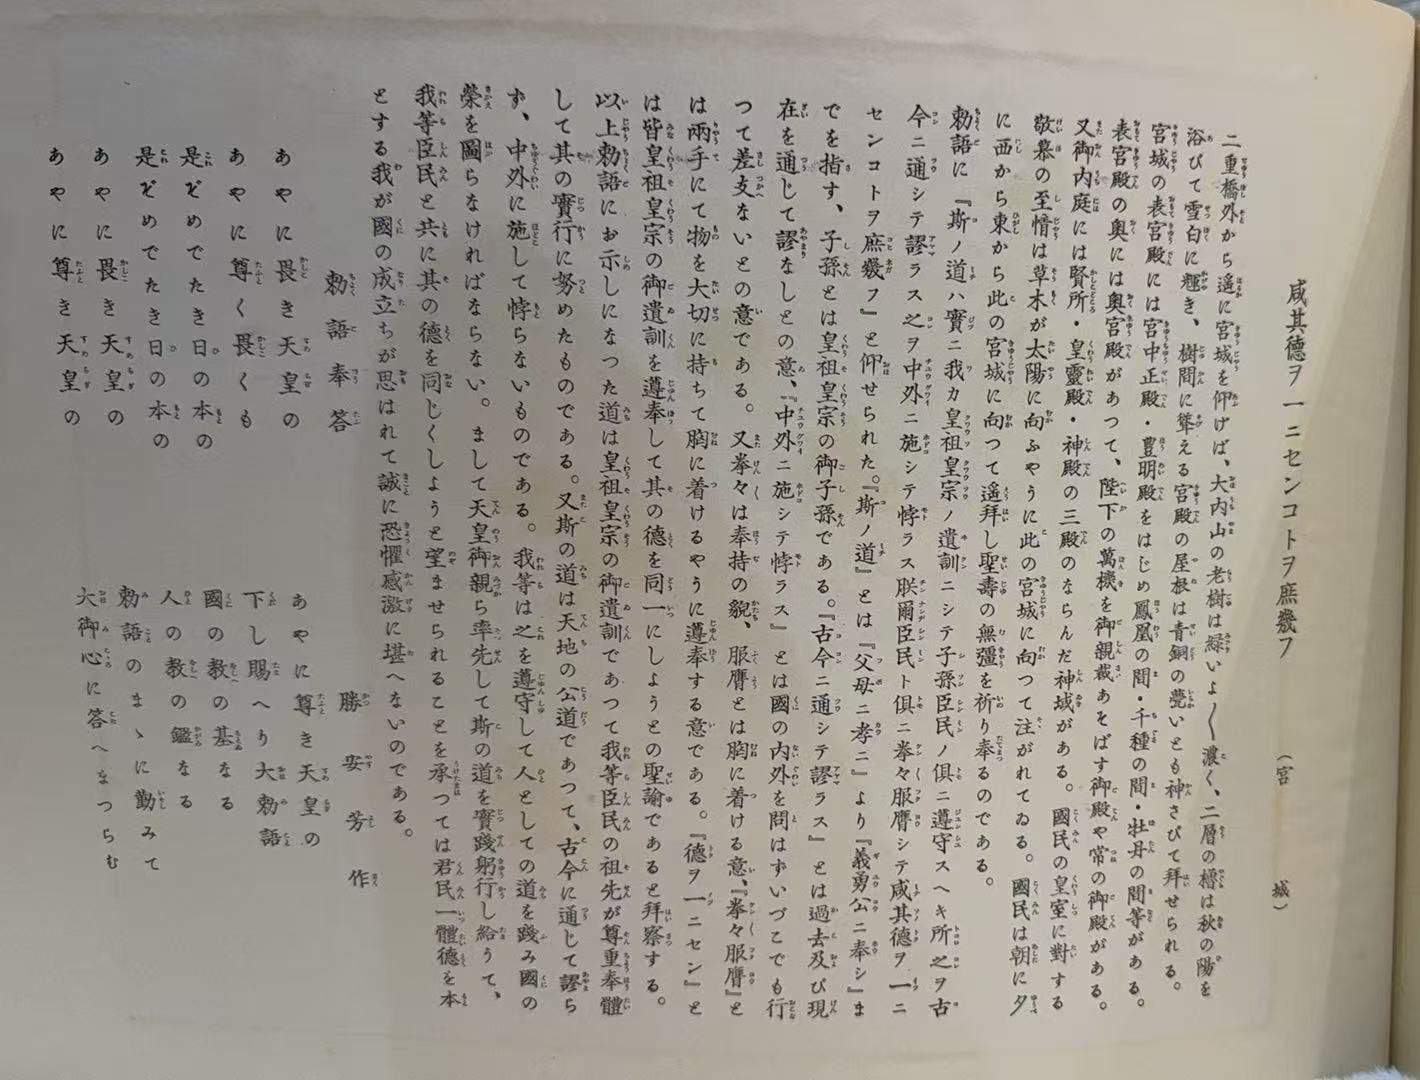 咸其德ヲ一ニセンコトヲ庶幾フ　（宮城）
二重橋外から遙に宮城を仰げば、大内山の老樹は緑いよ〱濃く、二層の櫓は秋の陽を
浴びて雪白に輝き、樹間に聳える宮殿の屋根は青銅の甍いとも神さびて拜せられる。
宮城の表宮殿には宮中正殿・豊明殿をはじめ鳳凰の間・千種の間・牡丹の間等がある。
表宮殿の奥には奥宮殿があつて、陛下の萬機を御親裁あそばす御殿や常の御殿がある。
又御内庭には賢所・皇靈殿・神殿の三殿のならんだ神域がある。國民の皇室に對する
敬慕の至情は草木が太陽に向ふやうに此の宮城に向つて注がれてゐる。國民は朝に夕
に西から東から此の宮城に向つて遙拜し聖壽の無彊を祈り奉るのである。
勅語に『斯ノ道ハ實ニ我カ皇祖皇宗ノ遺訓ニシテ子孫臣民ノ俱ニ遵守スヘキ所之ヲ古
今ニ通シテ謬ラス之ヲ中外ニ施シテ悖ラス朕爾臣民ト俱ニ拳々服膺シテ咸其德ヲ一ニ
センコトヲ庶幾フ』と仰せられた。『斯ノ道』とは『父母ニ孝ニ』より『義勇公ニ奉シ』ま
でを指す、子孫とは皇祖皇宗の御子孫である。『古今ニ通シテ謬ラス』とは過去及び現
在を通じて謬なしとの意、『中外ニ施シテ悖ラス』とは國の内外を問はずいづこでも行
つて差支ないとの意である。又拳々は奉持の貌、服膺とは胸に着ける意、『拳々服膺』と
は兩手にて物を大切に持ちて胸に着けるやうに遵奉する意である。『德ヲ一ニセン』と
は皆皇祖皇宗の御遺訓を遵奉して其の德を同一にしようとの聖諭であると拜察する。
以上勅語にお示しになつた道は皇祖皇宗の御遺訓であつて我等臣民の祖先が尊重奉體
して其の實行に努めたものである。又斯の道は天地の公道であつて、古今に通じて謬ら
ず、中外に施して悖らないものである。我等は之を遵守して人としての道を踐み國の
榮を圖らなければならない。まして天皇御親ら率先して斯の道を實踐躬行し給うて、
我等臣民と共に其の德を同じくしようと望ませられることを承つては君民一體德を本
とする我が國の成立ちが思はれて誠に恐懼感激に堪へないのである。
勅語奉答
勝安芳作
あやに畏き天皇の
あやに尊く畏くも
是ぞめでたき日の本の
是ぞめでたき日の本の
あやに畏き天皇の
あやに尊き天皇の
あやに尊き天皇の
下し賜へり大勅語
國の教の基なる
人の教の鑑なる
勅語のまゝに勤みて
大御心に答へまつらむ